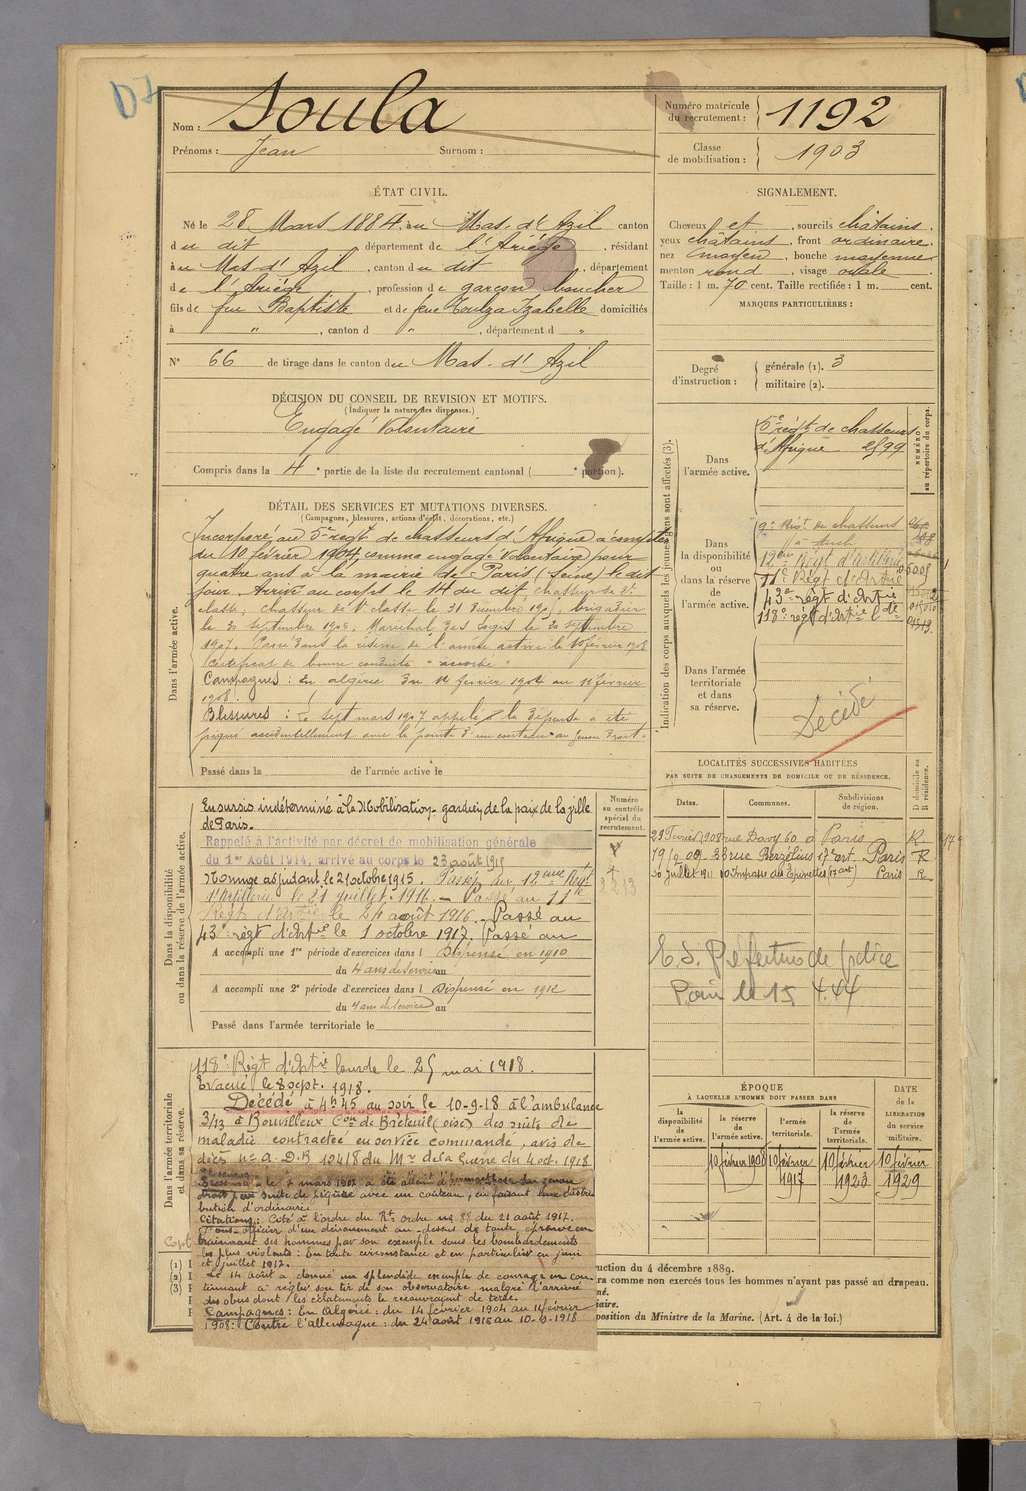 D7
Nom : Soula
Prénoms : Jean Surnom :
Numéro matricule du recrutement : 1192
Classe de mobilisation : 1903
ÉTAT CIVIL.
Né le 28 Mars 1884, au Mas-d'Azil canton
du dit département de l'Ariège, résidant
au Mas d'Azil, canton du dit, département
de l'Ariège, profession de garçon boucher
fils de feu Baptiste et de feue Toulza Izabelle domiciliés
à " , canton d " , département d "
N° 66 de tirage dans le canton du Mas-d'Azil
SIGNALEMENT.
Cheveux et , sourcils châtains,
yeux châtains, front ordinaire,
nez moyen, bouche moyenne
menton rond, visage ovale
Taille : 1 m. 70 cent. Taille rectifiée : 1 m. cent.
MARQUES PARTICULIÈRES :
Degré d'instruction : générale (1). 3
militaire (2).
DÉCISION DU CONSEIL DE REVISION ET MOTIFS.
(Indiquer la nature des dispenses.)
Engagé Volontaire
Compris dans la 4e partie de la liste du recrutement cantonal ( e portion).
DÉTAIL DES SERVICES ET MUTATIONS DIVERSES.
(Campagnes, blessures, actions d'éclat, décorations, etc.)
Dans l'armée active.
Incorporé au 5e régt de chasseurs d'Afrique à compter
du 10 février 1904, comme engagé volontaire pour
quatre ans à la mairie de Paris (Seine) le dit
jour. Arrivé au corps le 14 du dit, chasseur de 2e
classe, chasseur de 1e classe le 31 Décembre 190, brigadier
le 20 Septembre 1906. Maréchal des logis le 20 Septembre
1907. Passé dans la réserve de l'armée active le 10 février 1908
Certificat de bonne conduite "accordé"
Campagnes : En algérie du 14 février 1904 au 11 février
1908.
Blessures : Le Sept mars 1907 appelé à la dépense a été
piqué accidentellement avec la pointe d'un couteau au genou droit.
Passé dans la de l'armée active le
Indication des corps auxquels les jeunes gens sont affectés (3).
NUMÉRO au répertoire du corps.
Dans l'armée active.
5e régt de chasseurs
d'Afrique 2599
Dans la disponibilité ou dans la réserve de l'armée active.
9e Régt de chasseurs
12ème Régt d'Artillerie
11e Régt d'Artie
43e régt d'Artie
118e régt d'Artie lde
Dans l'armée territoriale et dans sa réserve.
Décédé
LOCALITÉS SUCCESSIVES HABITÉES
PAR SUITE DE CHANGEMENTS DE DOMICILE OU DE RÉSIDENCE.
Dates. Communes. Subdivisions de région. D domicile ou R résidence.
23 Février 1908 rue Davy 60 à Paris R
19/2 09 33 rue Berzélius 17e art. Paris R
26 Juillet 1911 10 Impasse des Epinettes (17e art) Paris R
E.S. Préfecture de police
Paris le 15 4.44
Dans la disponibilité ou dans la réserve de l'armée active.
Numéro au contrôle spécial du recrutement.
En sursis indéterminé à la Mobilisation - gardien de la paix de la ville
de Paris.
Rappelé à l'activité par décret de mobilisation générale
du 1er Août 1914, arrivé au corps le 23 août 1915
Nommé adjudant le 21 octobre 1915. Passé au 12ème Régt
d'Artillerie le 21 juillet 1916. - Passé au 11e
Régt d'Artie le 24 août 1916. - Passé au
43e régt d'Artie le 1 octobre 1917. Passé au
A accompli une 1re période d'exercices dans l Dispensé en 1910
du 4 ans de Service au
A accompli une 2e période d'exercices dans l Dispensé en 1912
du 4 ans de Service au
Passé dans l'armée territoriale le
Dans l'armée territoriale et dans sa réserve.
118e Régt d'Artie lourde le 25 mai 1918.
Evacué le 8 sept. 1918.
Décédé à 4h45 au soir le 10-9-18 à l'ambulance
3/13 à Bouvilleux Con de Breteuil (oise) des suite de
maladie contractée en service commandé, avis de
décès n° a. D.R 12418 du Mre de la Guerre du 4 oct. 1918
Blessures : le 7 mars 1907 a été atteint d'hémarthrose du genou
droit par suite de piqûre avec un couteau, en faisant une distri
bution d'ordinaire.
Citations : Cité à l'ordre du Rt ordre n° 88 du 21 août 1917.
Sous-officier d'un dévouement au-dessus de toute épreuve en
traînant ses hommes par son exemple sous les bombardements
les plus violents : En toute circonstance et en particulier en juin
et juillet 1917.
Le 14 août a donné un splendide exemple de courage en con
tinuant à régler son tir de son observatoire, malgré l'arrivée
des obus dont les éclatements le recouvraient de terre.
Campagnes : En Algérie : du 14 février 1904 au 11 février
1908 : Contre l'allemagne : du 24 août 1915 au 10-9-1918
ÉPOQUE
À LAQUELLE L'HOMME DOIT PASSER DANS
la disponibilité de l'armée active. la réserve de l'armée active. l'armée territoriale. la réserve de l'armée territoriale.
DATE de la LIBÉRATION du service militaire.
10 février 1908 10 février 1917 10 février 1923 10 février 1929
(1)
(2)
(3)
ruction du 4 décembre 1889.
ra comme non exercés tous les hommes n'ayant pas passé au drapeau.
né.
iaire.
position du Ministre de la Marine. (Art. 4 de la loi.)